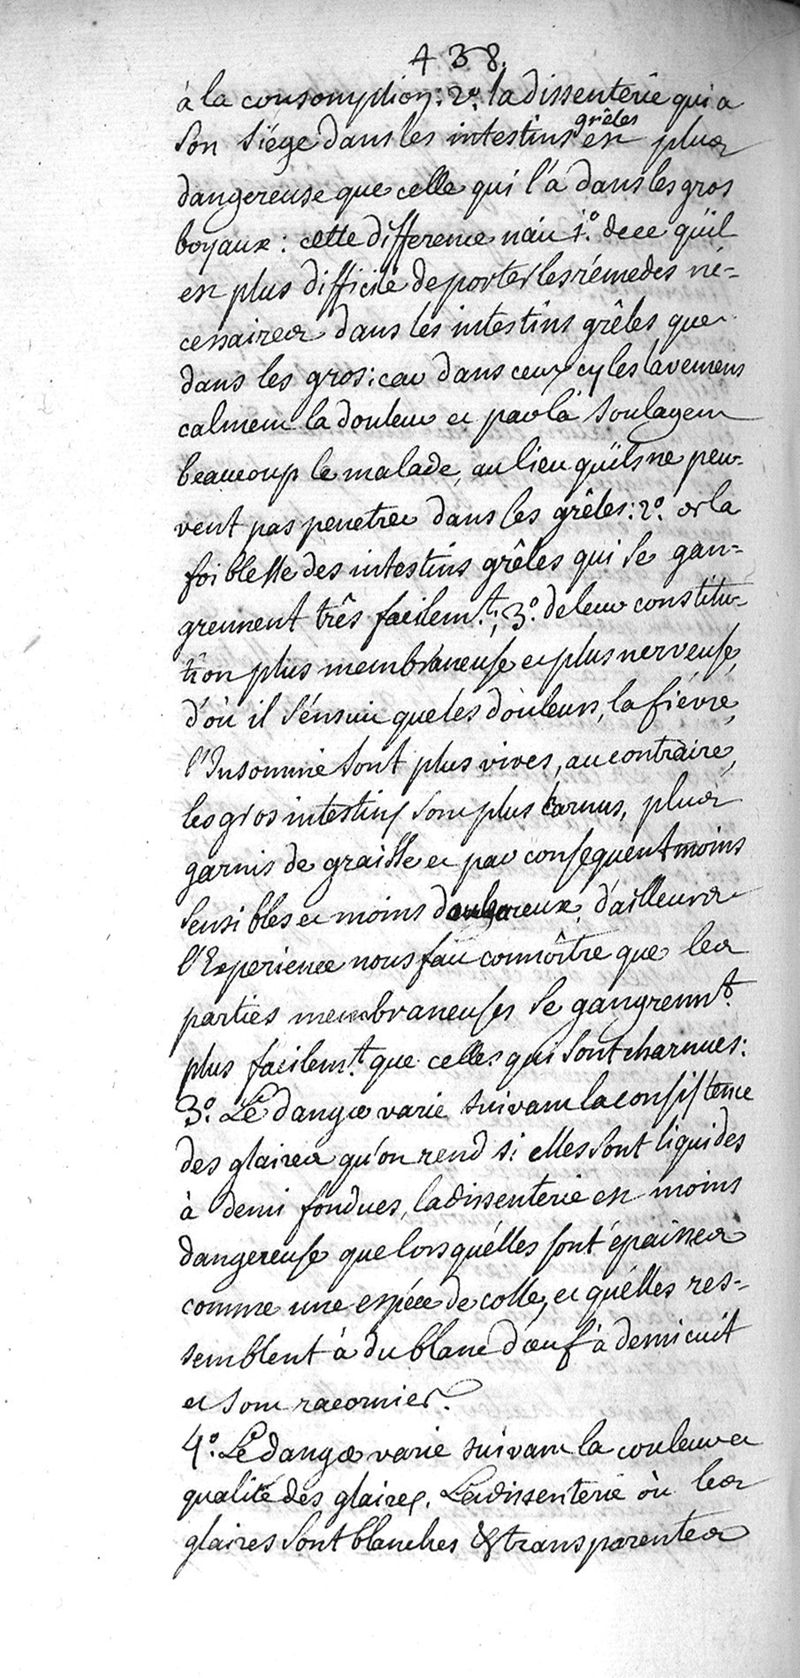 438.
à la consomption: 2.º la dissenterie qui a
son siége dans les intestins grêles est plus
dangereuse que celle qui l'a dans les gros
boyaux: cette difference nait 1.º de ce qu'il
est plus difficile de porter les rémedes né-
cessaires dans les intestins grêles que
dans les gros: car dans ceux cy les lavemens
calment la douleur et par là soulagent
beaucoup le malade, au lieu qu'ils ne peu-
vent pas penetrer dans les grêles: 2.º de la
foiblesse des intestins grêles qui se gan-
grennent três facilem.t; 3.º de leur constitu-
tion plus membraneuse et plus nerveuse,
d'où il s'ensuit que les douleurs, la fiévre,
l'Insomnie sont plus vives, au contraire,
les gros intestins sont plus charnus, plus
garnis de graisse et par consequent moins
sensibles et moins douloureux, d'ailleurs
l'Experience nous fait connoître que les
parties membraneuses se gangrenn.t
plus facilem.t que celles qui sont charnues:
3.º Le danger varie suivant la consistence
des glaires qu'on rend si elles sont liquides
à demi fondues, la dissenterie est moins
dangereuse que lorsqu'elles sont épaisses
comme une espéce de colle, et qu'elles res-
semblent à du blanc d'oeuf à demi cuit
et sont racornies.
4.º Le danger varie suivant la couleur et
qualité des glaires. La dissenterie où les
glaires sont blanches & transparentes